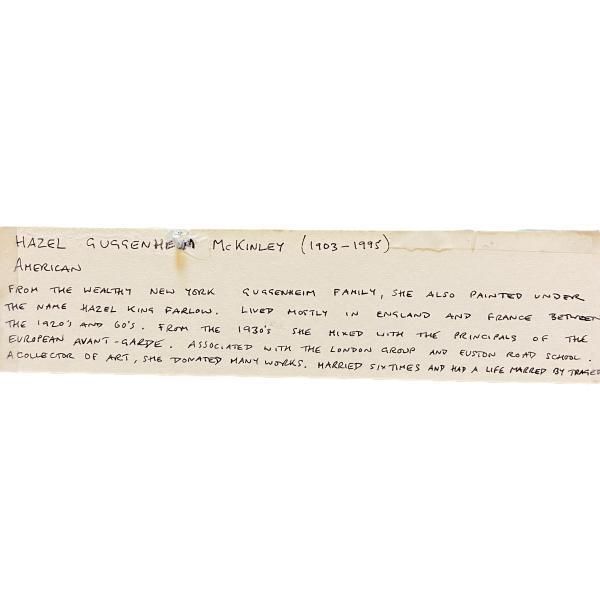 HAZEL GUGGENHEIM McKINLEY (1903-1995)
AMERICAN
FROM THE WEALTHY NEW YORK GUGGENHEIM FAMILY, SHE ALSO PAINTED UNDER
THE NAME HAZEL KING FARLOW. LIVED MOSTLY IN ENGLAND AND FRANCE BETWEEN
THE 1920'S AND 60'S. FROM THE 1930'S SHE MIXED WITH THE PRINCIPALS OF THE
EUROPEAN AVANT-GARDE. ASSOCIATED WITH THE LONDON GROUP AND EUSTON ROAD SCHOOL.
A COLLECTOR OF ART, SHE DONATED MANY WORKS. MARRIED SIX TIMES AND HAD A LIFE MARRED BY TRAGED